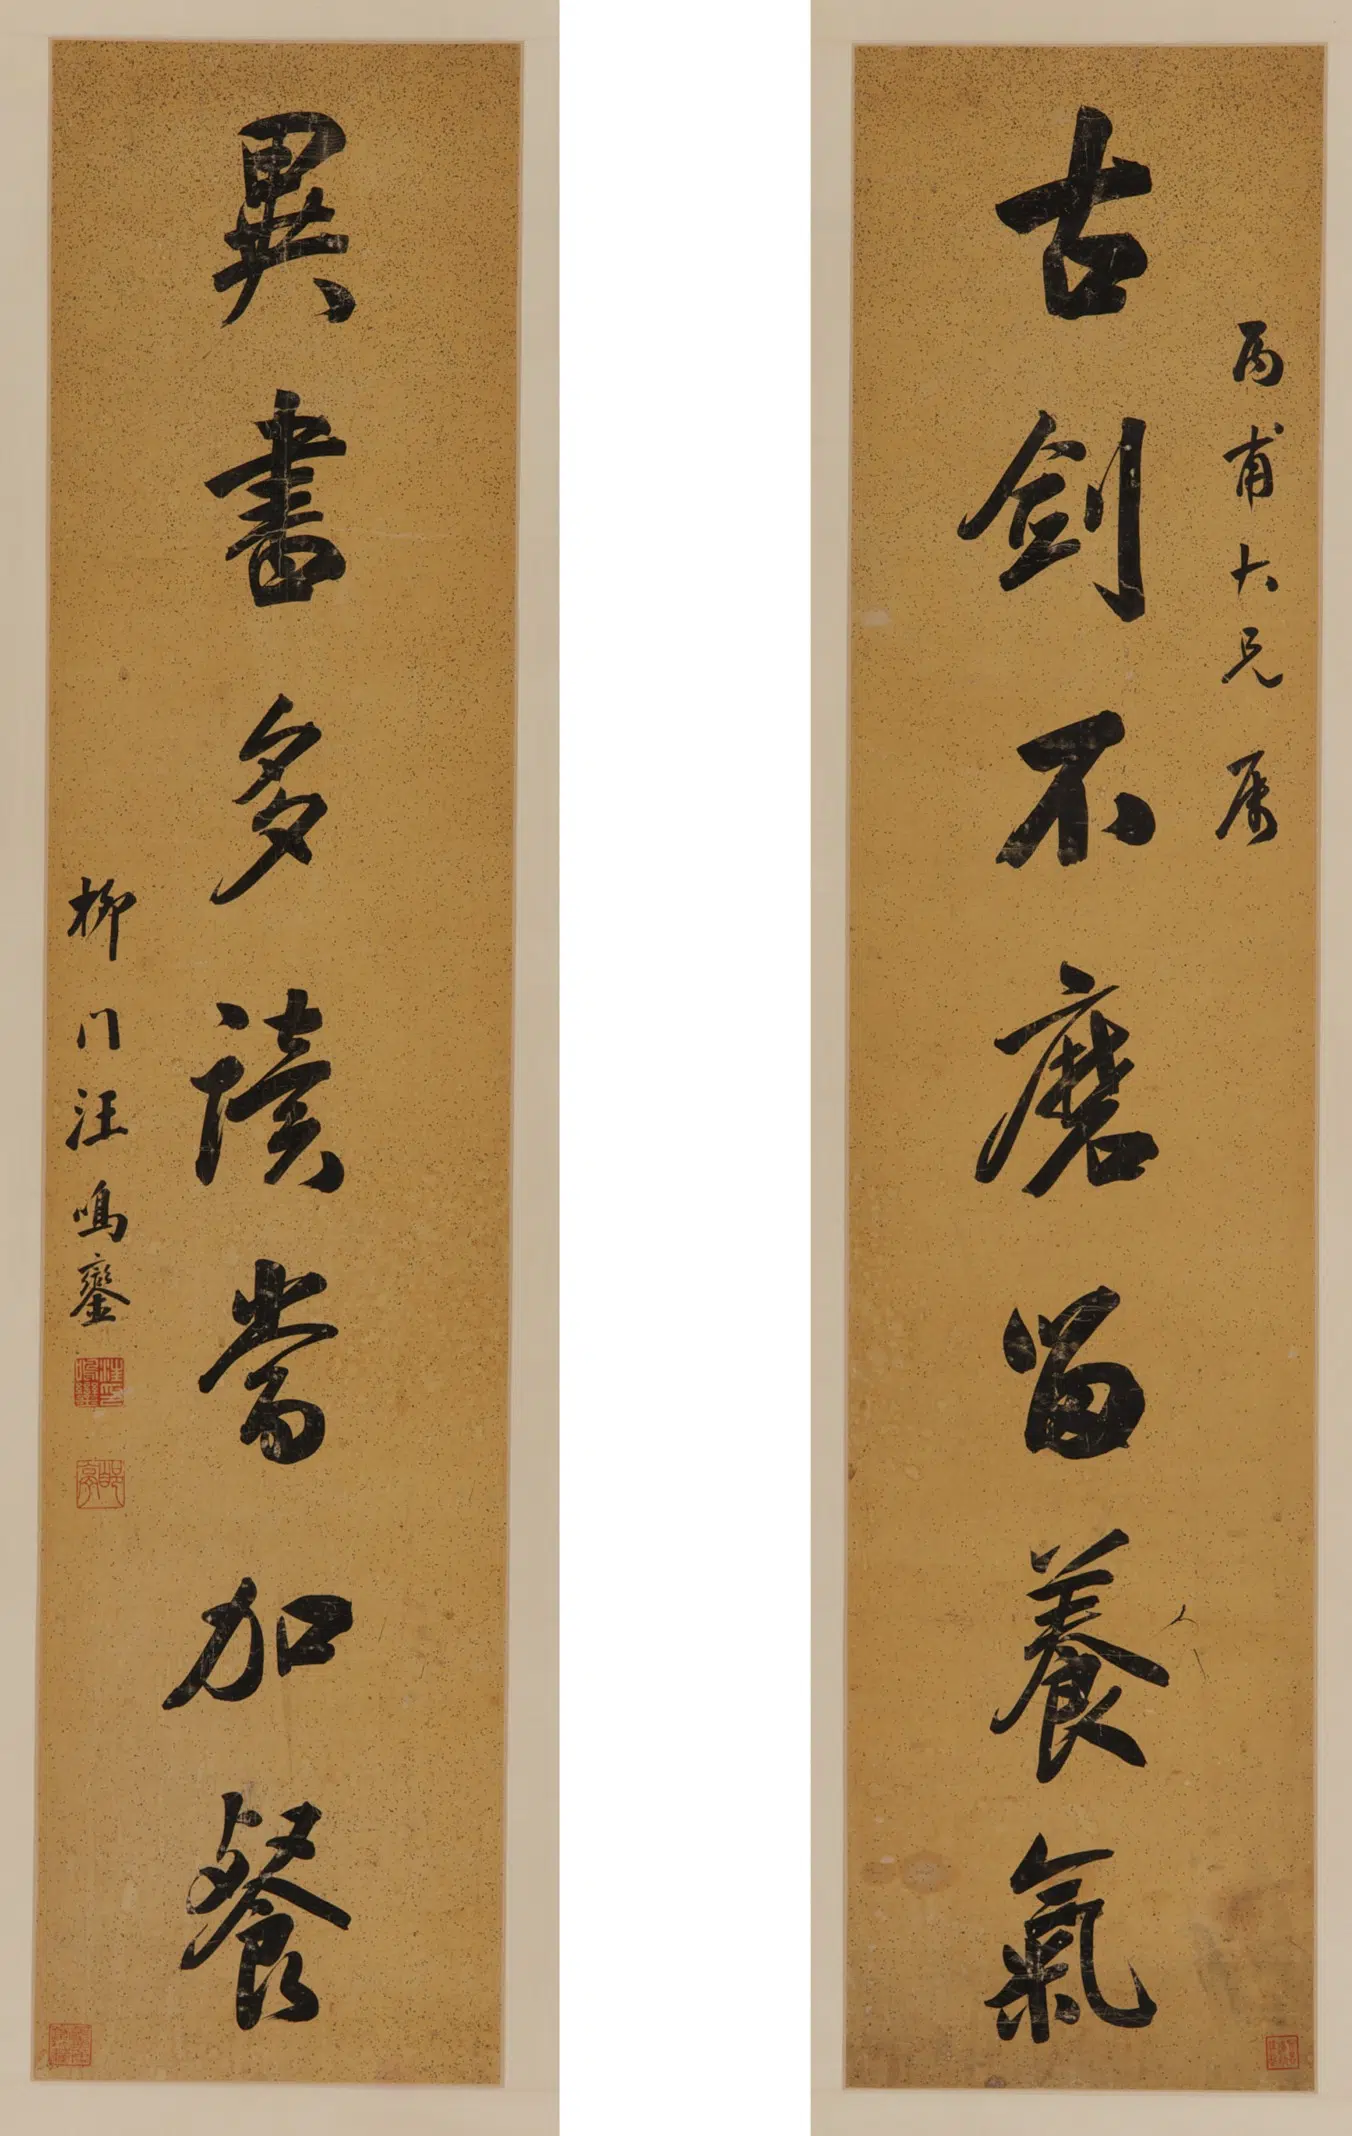 古劍不磨留養氣
丙甫大兄屬
異書多讀當加餐
柳門汪鳴鑾
汪鳴鑾印
郋亭